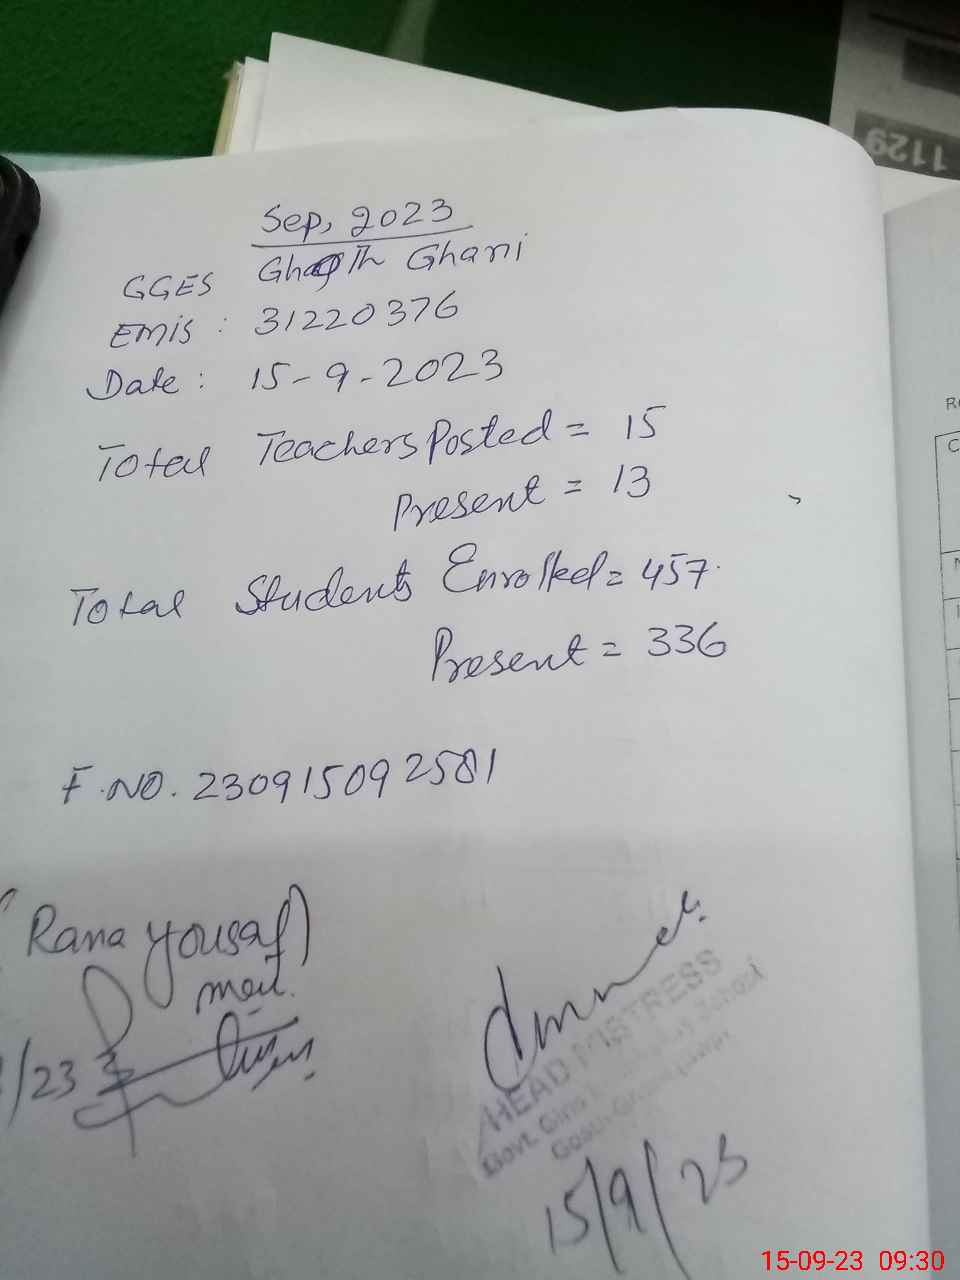 1129
Sep, 2023
GGES Ghani
EMIS : 31220376
Date : 15-9-2023
Total Teachers Posted = 15
Present = 13
Total Students Enrolled = 457.
Present = 336
F.NO. 230915092581
(Rana Yousaf)
/23
HEAD MISTRESS
Govt. School
15/9/23
15-09-23 09:30